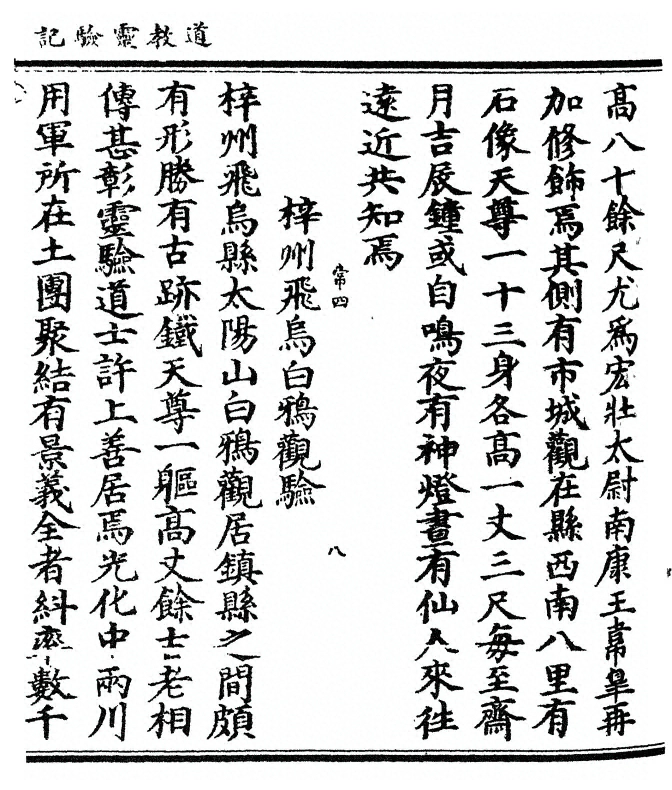 道教靈驗記
高八十餘尺尤爲宏壯太尉南康王韋臯再
加修飾焉其側有市城觀在縣西南八里有
石像天尊一十三身各高一丈三尺每至齋
月吉辰鐘或自鳴夜有神燈晝有仙人來往
遠近共知焉
常四
八
梓州飛烏白鴉觀驗
梓州飛烏縣太陽山白鴉觀居鎮縣之間頗
有形勝有古跡鐵天尊一軀高丈餘士老相
傳甚彰靈驗道士許上善居焉光化中兩川
用軍所在土團聚結有景義全者糾率數千